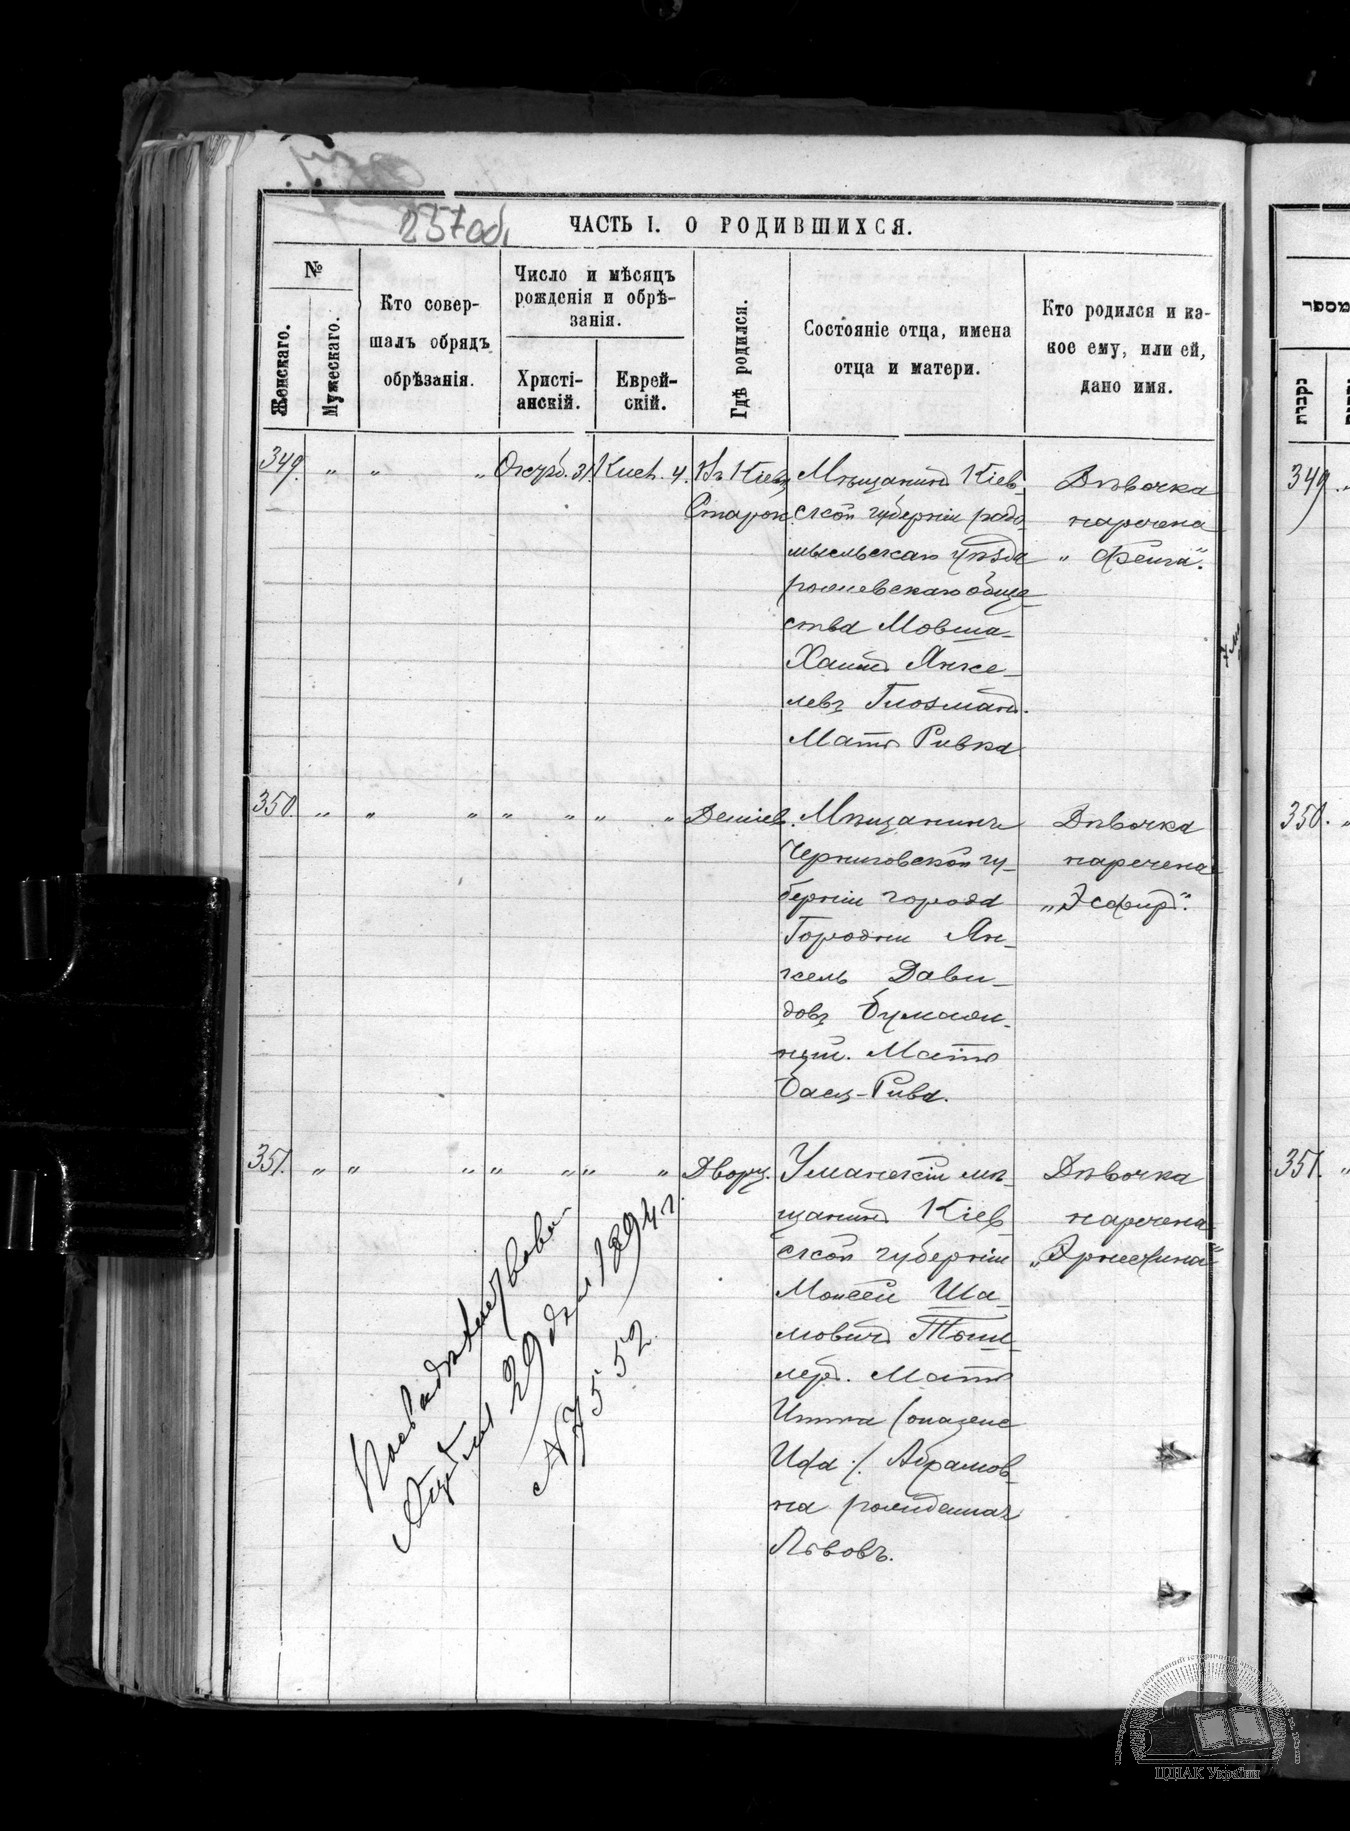 257 об.
ЧАСТЬ I. О РОДИВШИХСЯ.
№
Женскаго.
Мужескаго.
Кто совер-
шалъ обрядъ
обрѣзанія.
Число и мѣсяцъ
рожденія и обрѣ-
занія.
Христі-
анскій.
Еврей-
скій.
Гдѣ родился.
Состояніе отца, имена
отца и матери.
Кто родился и ка-
кое ему, или ей,
дано имя.
349. „ „ „ Октяб. 31. Кисл. 4. Въ Кіевѣ
Старок.
Мѣщанинъ Кіев-
ской губерніи радо-
мысльскаго уѣзда
рожевскаго обще-
ства Мовша-
Хаимъ Янке-
левъ Глозманъ.
Мать Ривка
Дѣвочка
наречена
„Фейга".
350. „ „ „ „ „ „ „ Деміев.
Мѣщанинъ
Черниговской гу-
берніи города
Городни Ян-
кель Дави-
довъ
Мать
Бася-Рива.
Дѣвочка
наречена
„Эсфирь".
351. „ „ „ „ „ „ „ Дворц.
Уманскій мѣ-
щанинъ Кіев
ской губерніи
Моисей Ша-
мовичъ
Мать
Итта
Абрамов-
на рожденная
Львовъ.
Дѣвочка
наречена
„Эрнестина"
29 1894 г.
№ 7552
מספר
נקבות
349.
350.
351.
ЦДІАК України